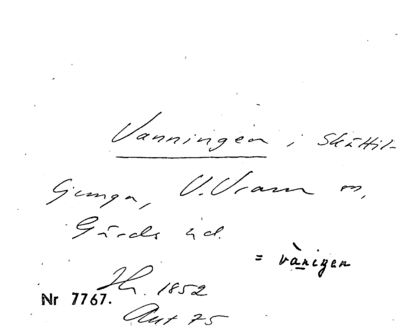 Vanningen i Skättil-
ljunga, V. Vram sn,
Gärds hd.
= vànigen
Hr. 1852
Nr 7767.
Ant 75